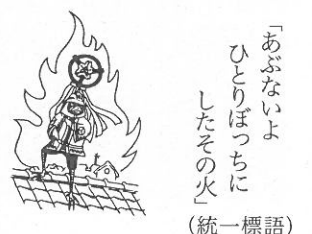 「あぶないよ
ひとりぼっちに
したその火」
(統一標語)